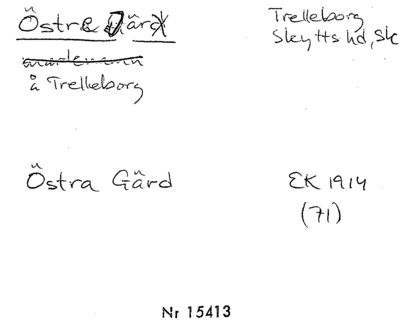 Östra Gård
Trelleborg
Skytts hd, Sk
å Trelleborg
Östra Gård
EK 1914
(71)
Nr 15413